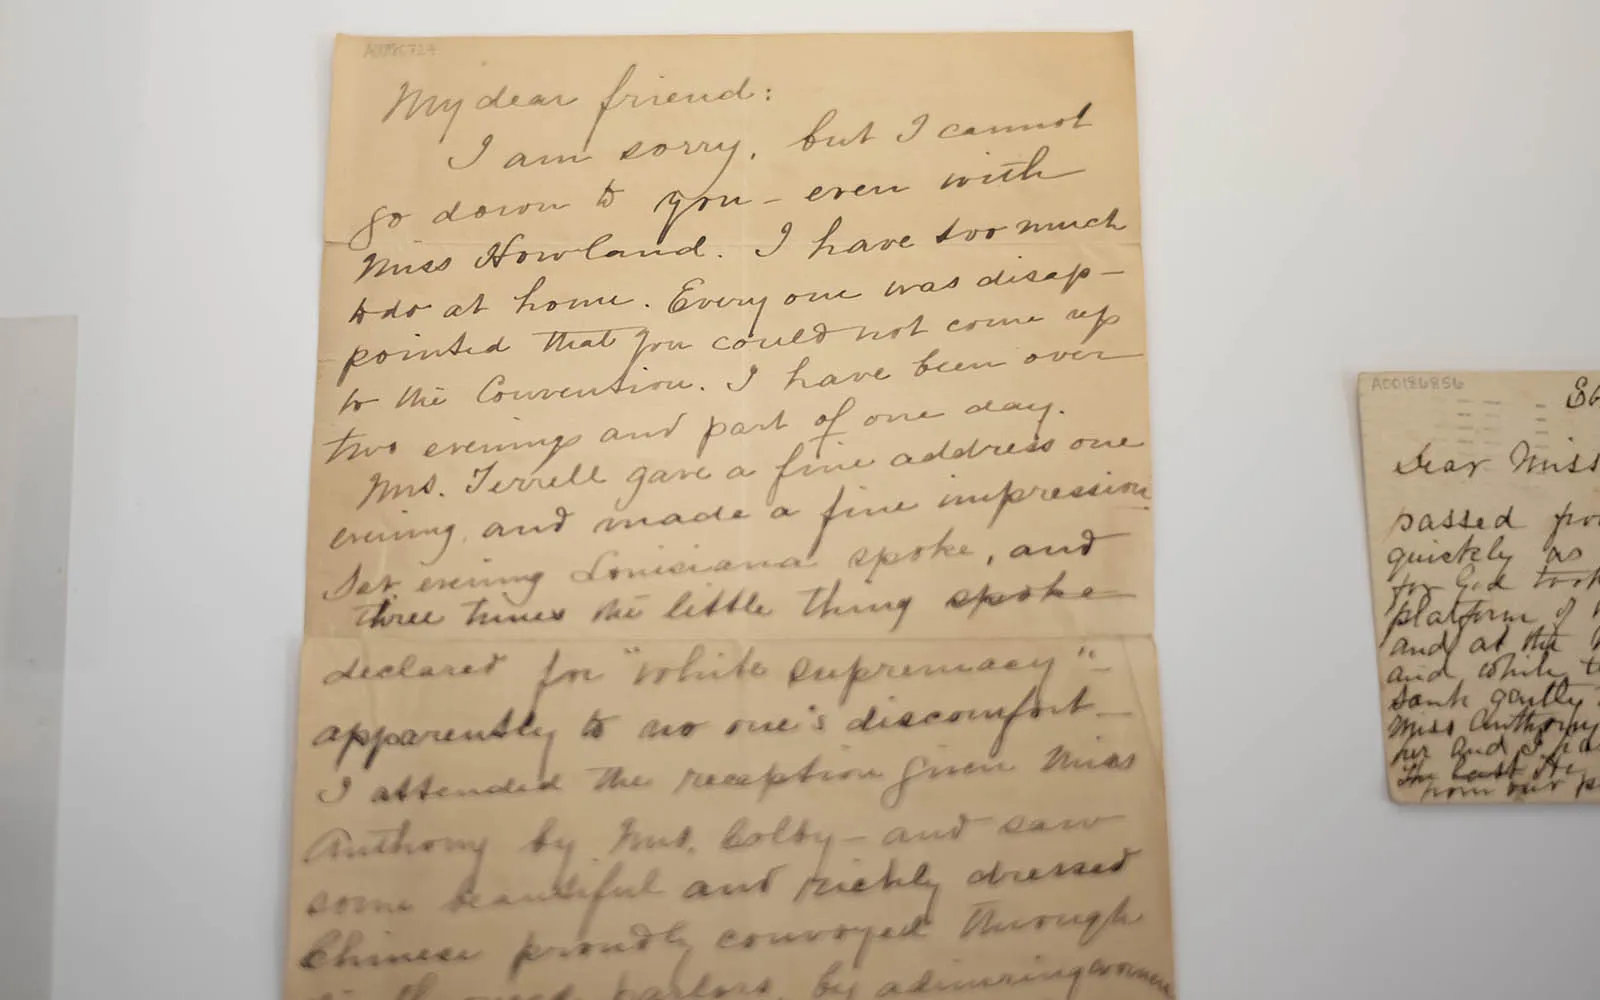 My dear friend:
I am sorry, but I cannot
go down to you - even with
Miss Howland. I have too much
to do at home. Every one was disap-
pointed that you could not come up
to the Convention. I have been over
two evenings and part of one day.
Mrs. Terrell gave a fine address one
evening, and made a fine impression
evening Louisiana spoke, and
three times the little thing spoke
declared for "white supremacy" -
apparently to no one's discomfort -
I attended the reception given Miss
Anthony by Mrs. Colby - and saw
some beautiful and richly dressed
Chinese proudly convoyed through
parlors, by admiring women
A00186856
Dear Miss
passed
quickly as
for God took
platform of
and at the
and while
sank gently
Miss Anthony
her and I
The last
from our